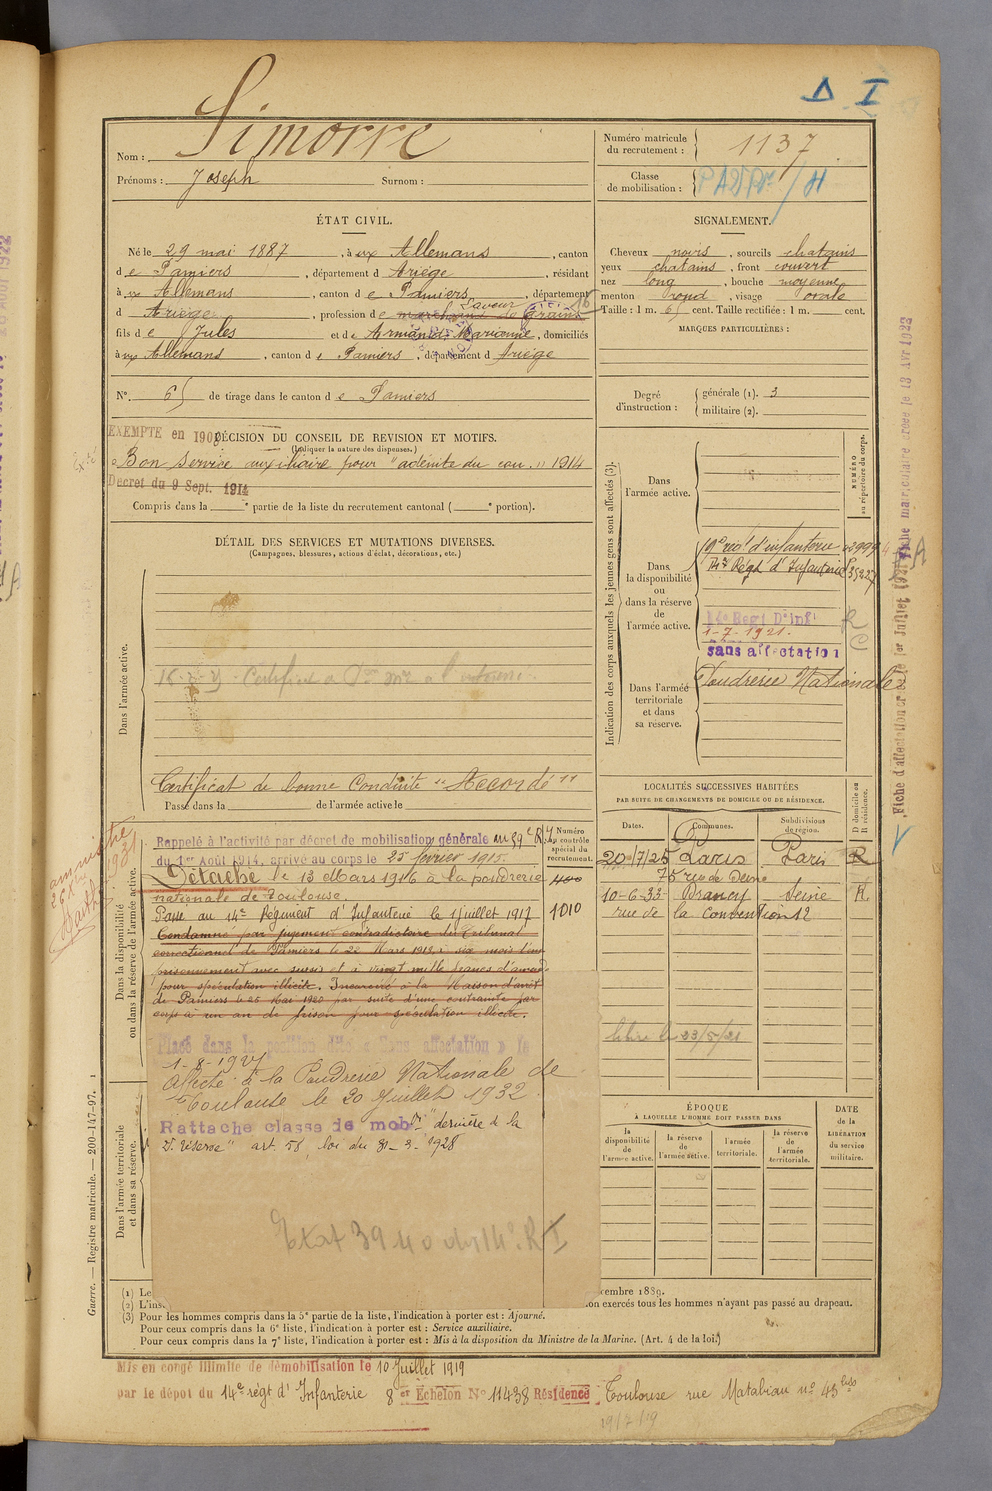 Δ I
Simorre
Nom :
Prénoms : Joseph Surnom :
Numéro matricule du recrutement : 1137
Classe de mobilisation :
ÉTAT CIVIL.
Né le 29 mai 1887, à Allemans, canton
de Pamiers, département d Ariège, résidant
à Allemans, canton de Pamiers, département
d Ariège, profession de marchand de Grains
fils de Jules et de Marienne, domiciliés
à Allemans, canton de Pamiers, département d Ariège
N° 65 de tirage dans le canton de Pamiers
SIGNALEMENT.
Cheveux noirs, sourcils chatains
yeux chatains, front couvert
nez long, bouche moyenne
menton rond, visage ovale
Taille : 1 m. 65 cent. Taille rectifiée : 1 m. cent.
MARQUES PARTICULIÈRES :
Degré d'instruction : générale (1). 3
militaire (2).
EXEMPTE en 190
DÉCISION DU CONSEIL DE REVISION ET MOTIFS.
(Indiquer la nature des dispenses.)
Bon service auxiliaire pour "adénite du cou." 1914
Décret du 9 Sept. 1914
Compris dans la ° partie de la liste du recrutement cantonal ( ° portion).
DÉTAIL DES SERVICES ET MUTATIONS DIVERSES.
(Campagnes, blessures, actions d'éclat, décorations, etc.)
Dans l'armée active.
Certificat de bonne Conduite "Accordé"
Passé dans la de l'armée active le
Indication des corps auxquels les jeunes gens sont affectés (3).
NUMÉRO au répertoire du corps.
Dans l'armée active.
Dans la disponibilité ou dans la réserve de l'armée active.
d'infanterie
14e Régt d'Infanterie
14e Regt D'inf
1-7-1921.
sans affectation
R
C
Dans l'armée territoriale et dans sa réserve.
Poudrerie Nationale
LOCALITÉS SUCCESSIVES HABITÉES
PAR SUITE DE CHANGEMENTS DE DOMICILE OU DE RÉSIDENCE.
Dates. Communes. Subdivisions de région. D domicile ou R résidence.
20/7/25 Paris Paris R
10-6-33 Drancy Seine R.
rue de la Convention 12
23/5/21
Dans la disponibilité ou dans la réserve de l'armée active.
Numéro au contrôle spécial du recrutement.
Rappelé à l'activité par décret de mobilisation générale au 59e R.I
du 1er Août 1914, arrivé au corps le 25 février 1915.
Détaché le 13 Mars 1916 à la poudrerie
nationale de Toulouse.
Passé au 14e Régiment d'Infanterie le 1 juillet 1917
1010
Condamné par jugement contradictoire du Tribunal
correctionnel de Pamiers le 22 Mars 1918, à six mois d'em
prisonnement avec sursis et à vingt mille francs d'amende
pour spéculation illicite. Incarcéré à la Maison d'arrêt
de Pamiers le 26 Mai 1920 par suite d'une contrainte par
corps à un an de prison pour spéculation illicite.
Placé dans la position dite « Sans affectation » le
1-8-1927
Affecté à la Poudrerie Nationale de
Toulouse le 20 Juillet 1932
Rattaché classe de mob "dernière de la
2e réserve" art. 58, loi du 31-3-1928
14e R I
Dans l'armée territoriale et dans sa réserve.
ÉPOQUE
À LAQUELLE L'HOMME DOIT PASSER DANS
la disponibilité de l'armée active.
la réserve de l'armée active.
l'armée territoriale.
la réserve de l'armée territoriale.
DATE de la LIBÉRATION du service militaire.
(1) Le
cembre 1889.
(2) L'ins
on exercés tous les hommes n'ayant pas passé au drapeau.
(3) Pour les hommes compris dans la 5e partie de la liste, l'indication à porter est : Ajourné.
Pour ceux compris dans la 6e liste, l'indication à porter est : Service auxiliaire.
Pour ceux compris dans la 7e liste, l'indication à porter est : Mis à la disposition du Ministre de la Marine. (Art. 4 de la loi.)
Mis en congé illimité de démobilisation le 10 Juillet 1919
par le dépôt du 14e régt d'Infanterie 8e Echelon N° 11438 Résidence Toulouse rue Matabiau n° 45 bis
Guerre. — Registre matricule. — 200-147-97.